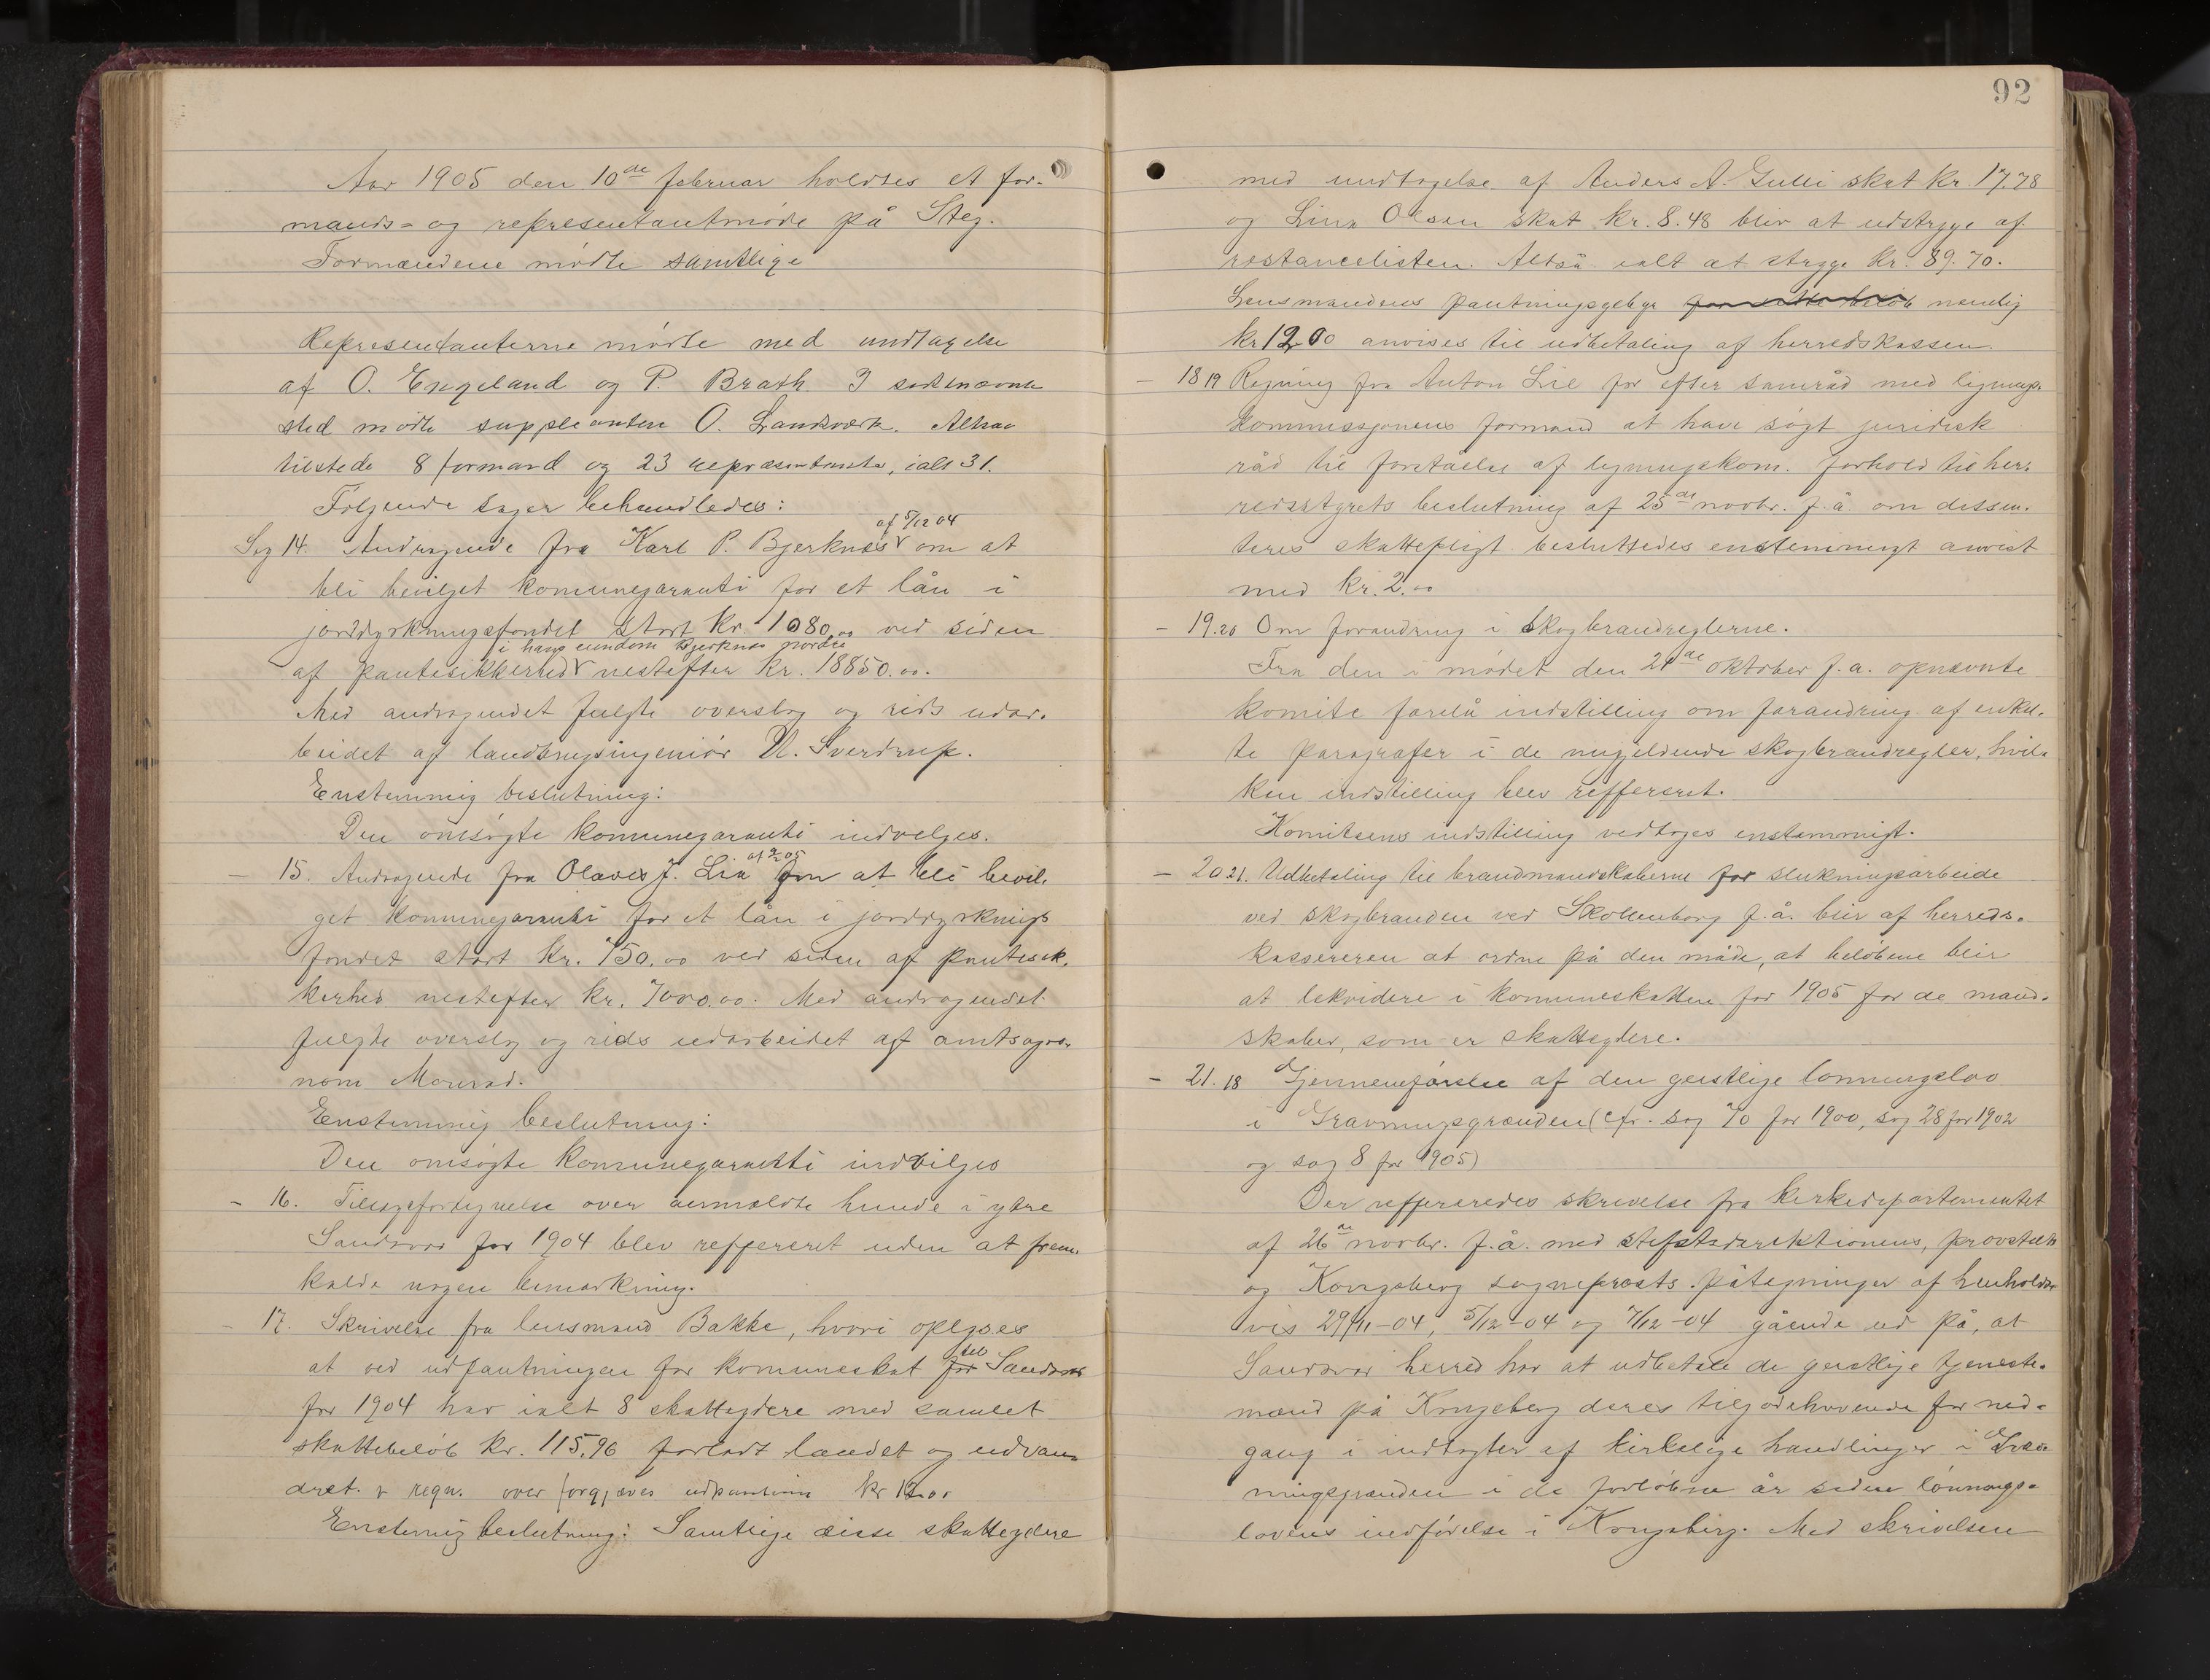 Aar 1905 den 10de februar holdtes et for-
mands- og representantmøde på Steg.
Formændene mødte samtlige
Representanterne mødte med undtagelse
af O. Engeland og P. Brath. I sidstnævnte
sted mødte suppleanten O. Landsverk. Altsaa
tilstede 8 formænd og 23 repræsentanter, ialt 31.
Følgende sager behandledes:
af 5/12 04
Sag 14. Andragende fra Karl P. Bjerknes v om at
bli bevilget kommunegaranti for et lån i
jorddyrkningsfondet stort kr. 1080,00 ved siden
i hans eiendom Bjerknes nordre
af pantesikkerhed v nestefter kr. 18850.00.
Med andragendet fulgte overslag og rids udar-
beidet af landbrugsingeniør U. Sverdrup.
Enstemmig beslutning:
Den omsøgte kommunegaranti indvelges.
af 9/2 05
- 15. Andragende fra Olaves J. Lia om at bli bevil-
get kommunegaranti for et lån i jorddyrknings
fondet stort kr. 750.00 ved siden af pantesik-
kerhed nestefter kr. 7000.00. Med andragendet
fulgte overslag og rids udarbeidet af amtsagro-
nom Monrad.
Enstemmig beslutning:
Den omsøgte kommunegaranti indvilges
- 16. Tillægsfortegnelse over anmeldte hunde i ytre
Sandsvær for 1904 blev reffereret uden at frem-
kalde nogen bemerkning.
- 17. Skrivelse fra lensmand Bakke, hvori oplyses
at ved udpantningen for kommuneskat for Sandsvær
for 1904 har ialt 8 skatteydere med samlet
skattebeløb kr. 115,96 forladt landet og udvan-
dret. v regn. over forgjæves udpantning kr 12.00
Enstemig beslutning: Samtlige disse skatteydere
92
med undtagelse af Anders A. Gulli skat kr. 17.78
og Lina Olsen skat kr. 8.48 blir at udstryge af
restancelisten. Altså ialt at stryge kr. 89.70.
Lensmandens pantningsgebyr for dette beløb nemlig
kr 12.00 anvises til udbetaling af herredskassen.
- 18 19 Regning fra Anton Lie for efter samråd med lignings-
kommissjonens formand at have søgt juridisk
råd til forståelse af ligningskom. forhold til her-
redsstyrets beslutning af 25de novbr. f.å. om dissen-
teres skattepligt besluttedes enstemmigt anvist
med kr. 2.00
- 19.20 Om forandring i skogbrandreglerne.
Fra den i mødet den 21de oktober f.a. opnævnte
komite forelå indstilling om forandring af enkel-
te paragrafer i de nugjeldende skogbrandregler, hvil-
ken indstilling blev reffereret.
Komiteens indstilling vedtoges enstemmigt.
- 20 21. Udbetaling til brandmandskaberne for slukningsarbeide
ved skogbranden ved Skollenborg f.å. blir af herreds-
kassereren at ordne på den måde, at beløbene blir
at lekvidere i kommuneskatten for 1905 for de mand-
skaber, som er skatteydere.
- 21. 18 Gjennemførelse af den geistlige lønningslov
i Gravningsgrænden (cfr. sag 70 for 1900, sag 28 for 1902
og sag 8 for 1905)
Der reffereredes skrivelse fra kirkedepartementet
af 26de novbr. f.å. med stiftsdirektionens, provstens
og Kongsberg sogneprests påtegninger af henholds-
vis 29/11-04, 5/12-04 og 7/12-04 gående ud på, at
Sandsvær herred har at udbetale de geistlige tjeneste-
mænd på Kongsberg deres tilgodehavende for ned-
gang i indtægter af kirkelige handlinger i Grav-
ningsgrænden i de forløbne år siden lønnings-
lovens indførelse i Kongsberg. Med skrivelsen